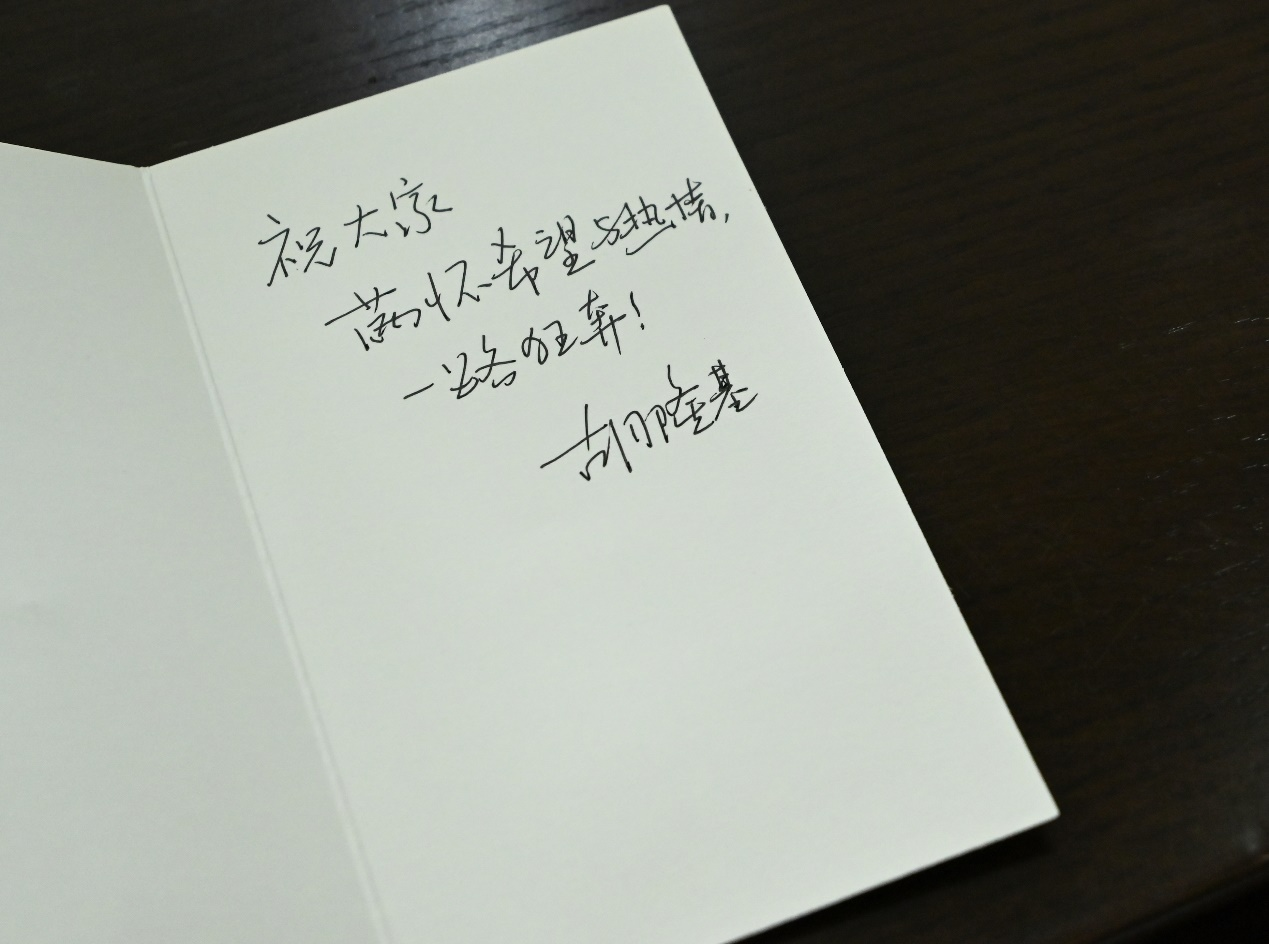 祝大家
满怀希望与热情,
一路狂奔!
胡隆基